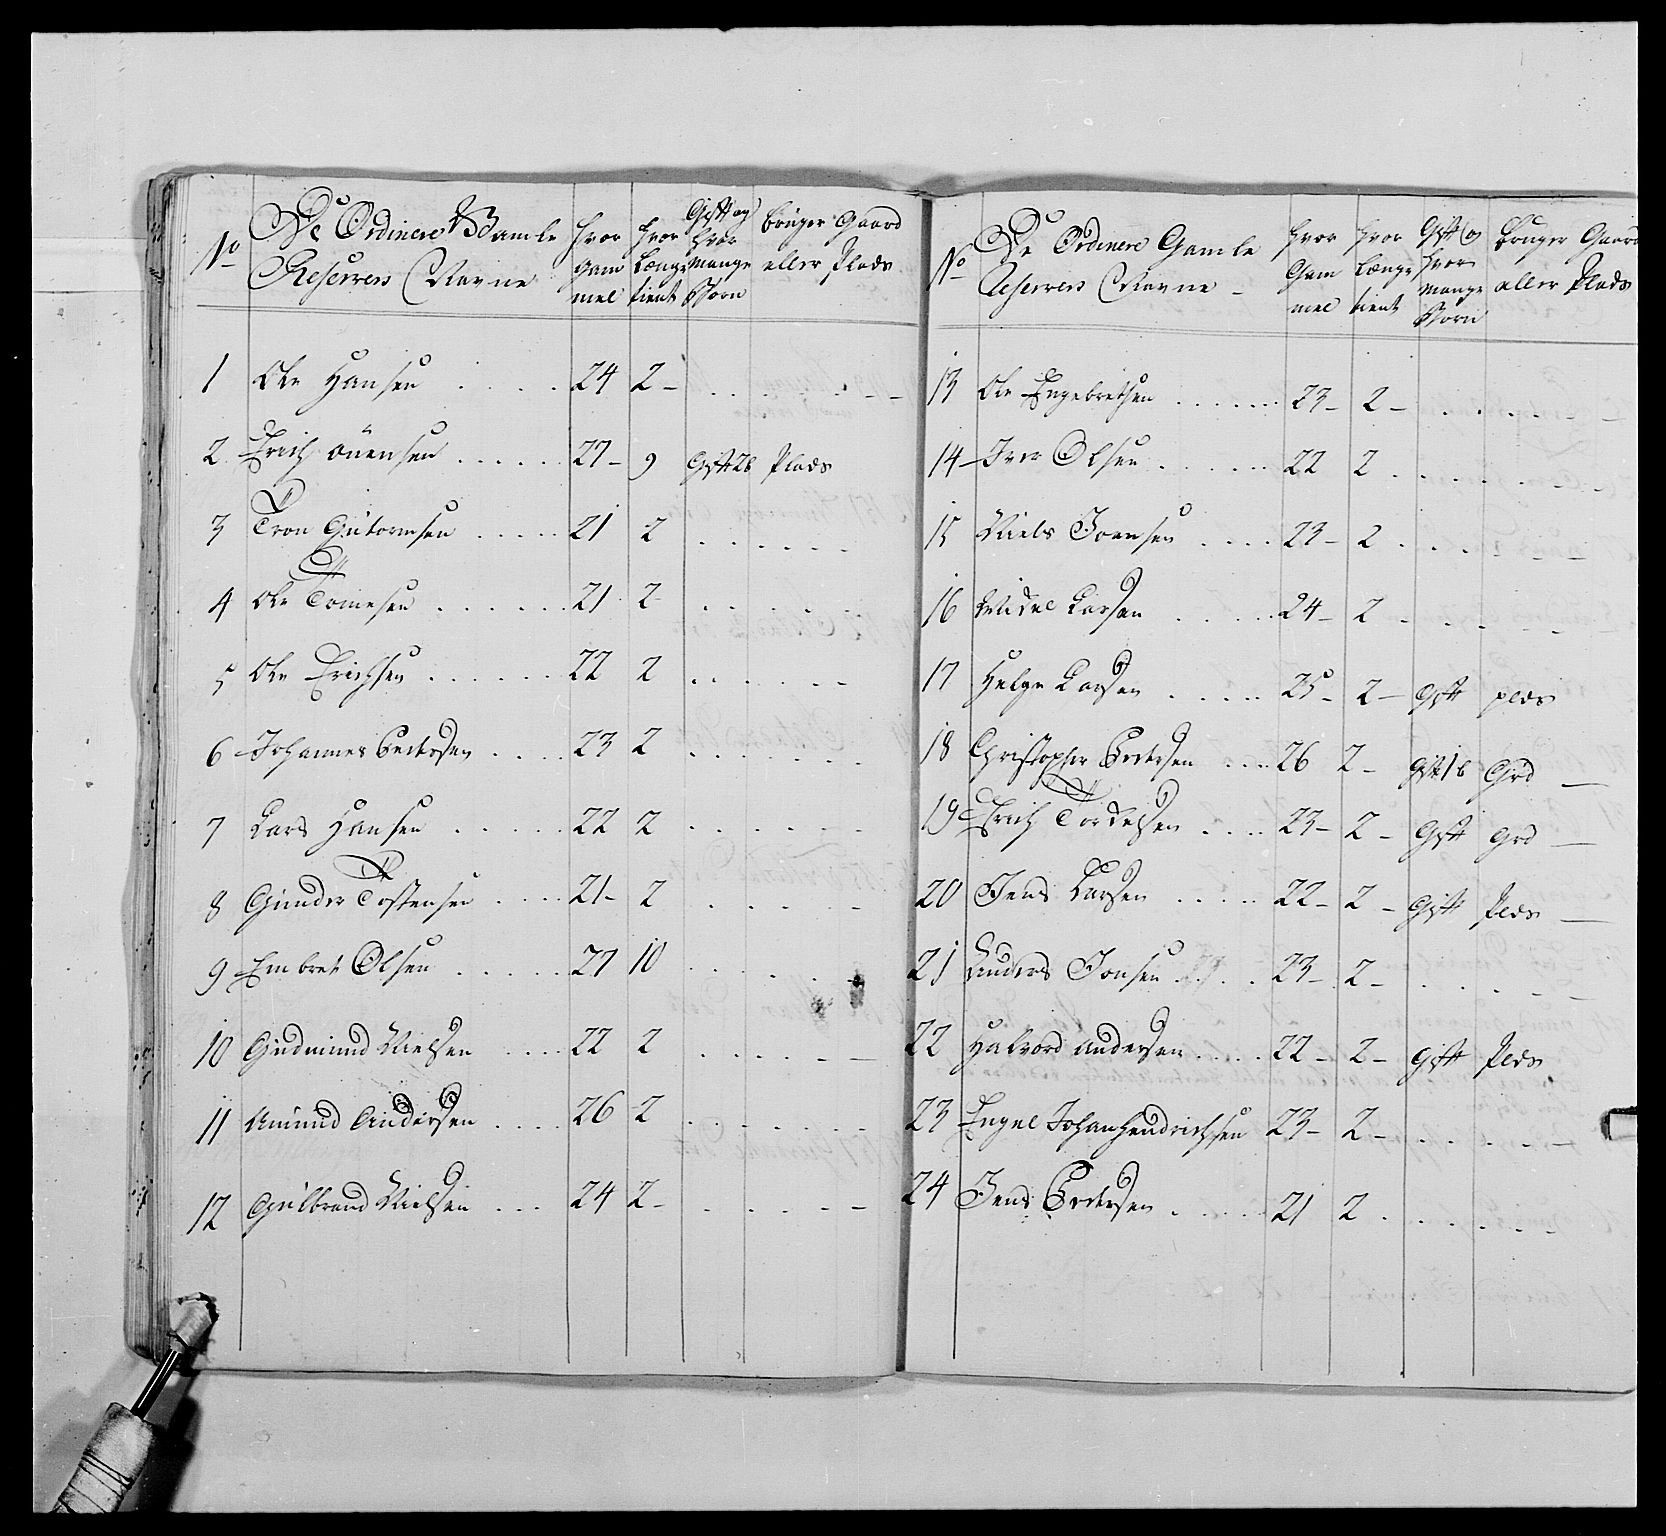 No De Ordinere Gamle Reservers Navne hvor Gammel hvor Længe tient Gift og hvor mange Børn bruger Gaard eller Plads
1 Ole Hansen 24 2
2 Erich 27 9 Gift 2b Plads
3 Tron Gutormsen 21 2
4 Ole Tomesen 21 2
5 Ole Erichsen 22 2
6 Johannes Pedersen 23 2
7 Lars Hansen 22 2
8 Gunder Tostensen 21 2
9 Embret Olsen 27 10
10 Gudmund Nielsen 22 2
11 Amund Andersen 26 2
12 Gulbrand Nielsen 24 2
No De Ordinere Gamle Reservers Navne hvor Gammel hvor Længe tient Gift og hvor mange Børn bruger Gaard eller Plads
13 Ole Engebretsen 23 2
14 Iver Olsen 22 2
15 Niels Joensen 23 2
16 Larsen 24 2
17 Helge Larsen 25 2 Gift plds
18 Christopher Pedersen 26 2 Gift 1b Grd
19 Erich Tordelsen 23 2 Gift Grd
20 Jens Larsen 22 2 Gift Plds
21 Anders Jonsen 23 2
22 Halvord Andersen 22 2 Gift Plds
23 Engel Johanhendrichsen 23 2
24 Jens Pedersen 21 2